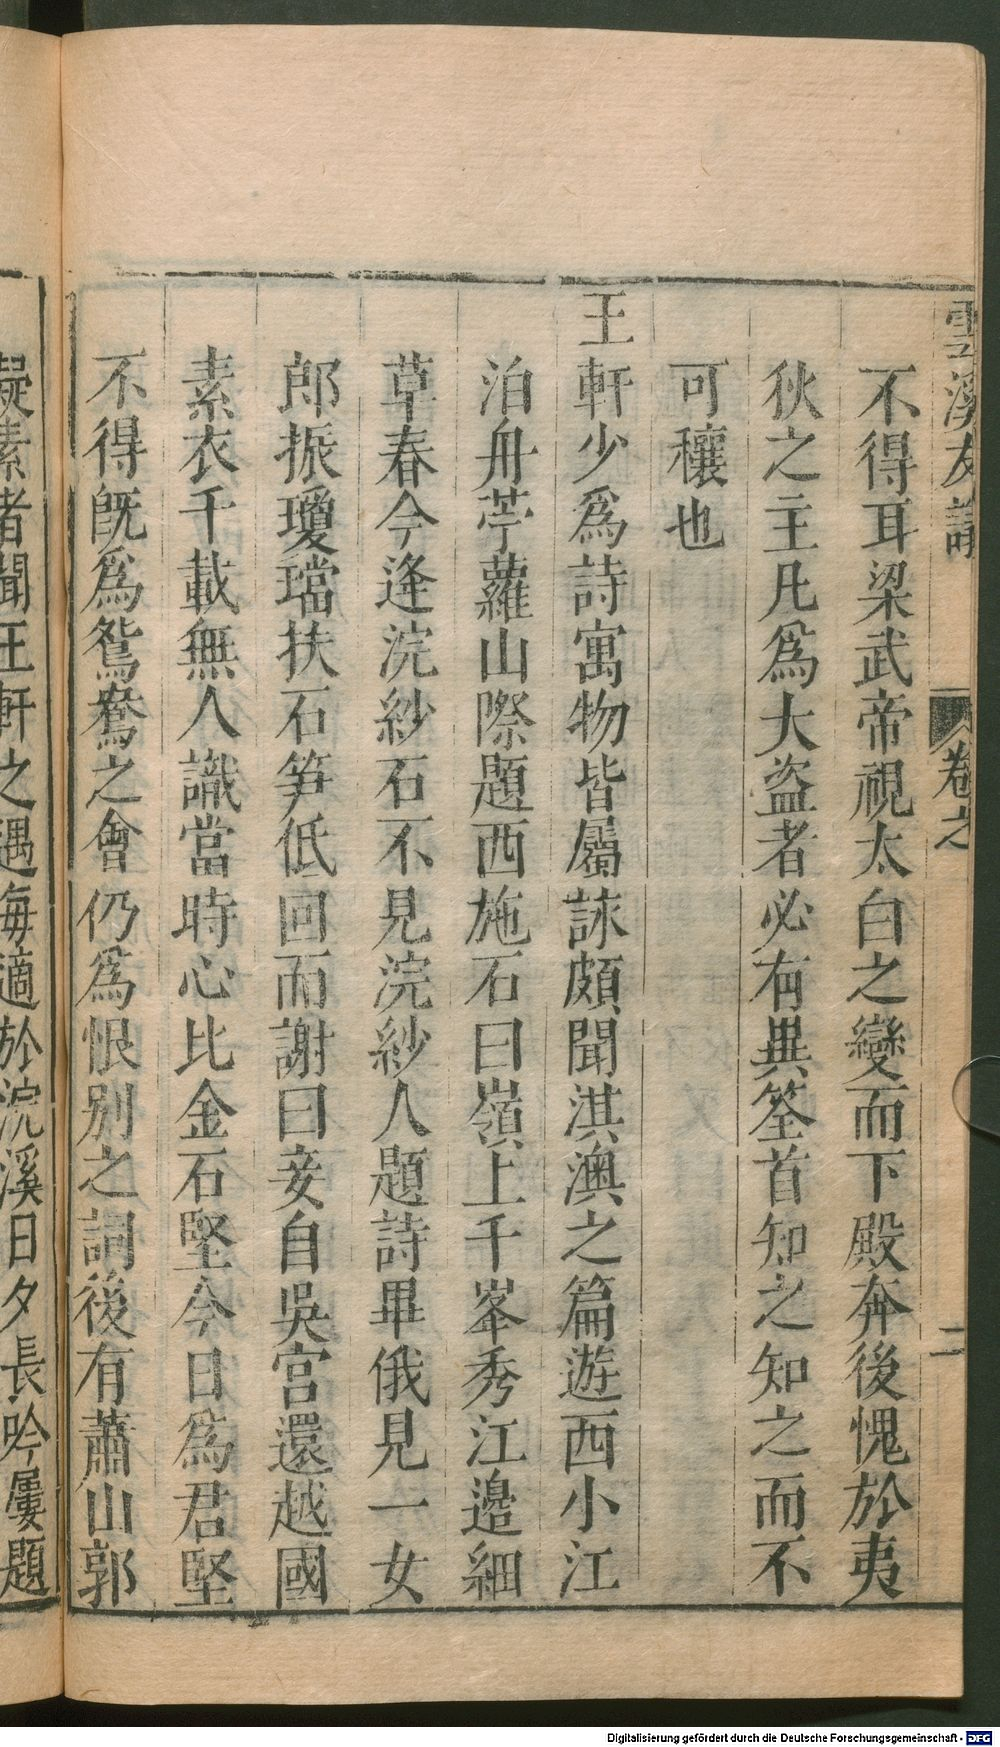 雲溪友議
卷之
二
不得耳梁武帝視太白之變而下殿奔後愧於夷
狄之主凡爲大盜者必有異筌首知之知之而不
可穰也
王軒少爲詩寓物皆屬詠頗聞淇澳之篇遊西小江
泊舟苧蘿山際題西施石曰嶺上千峯秀江邉細
草春今逢浣紗石不見浣紗人題詩畢俄見一女
郎振瓊璫扶石笋低回而謝曰妾自吳宮還越國
素衣千載無人識當時心比金石堅今日爲君堅
不得旣爲鴛鴦之會仍爲恨別之詞後有蕭山郭
凝素者聞王軒之遇毎適於浣溪日夕長吟屢題
Digitalisierung gefördert durch die Deutsche Forschungsgemeinschaft - DFG